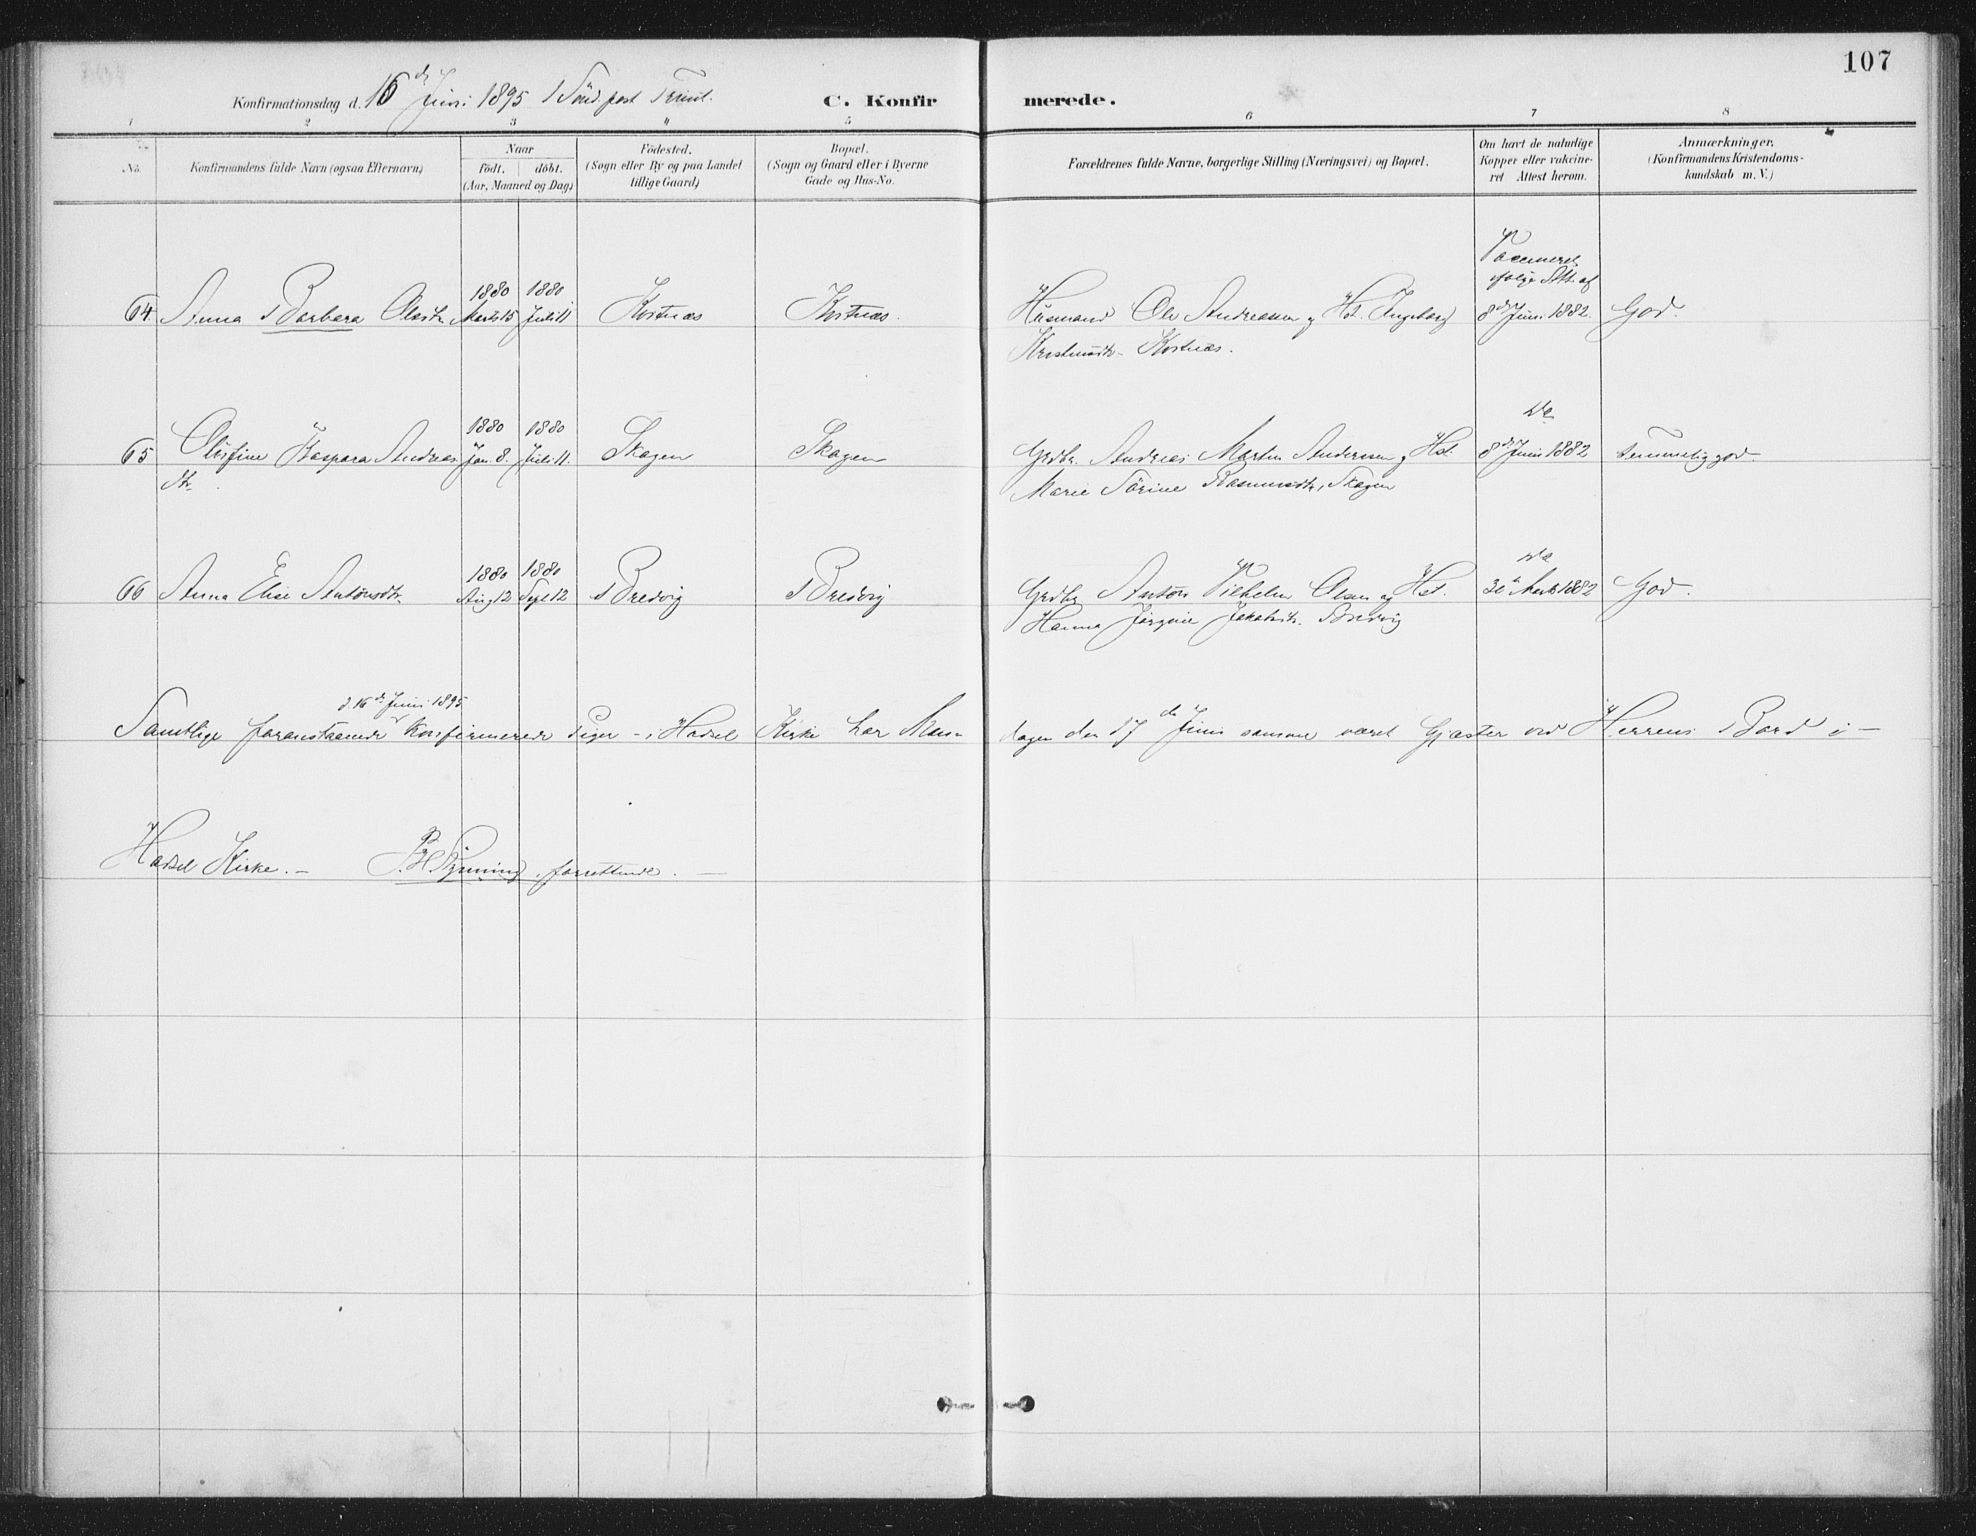 107
Konfirmationsdag d. 16 de Juni 1895 1 Sönd. post Trinit.
C. Konfirmerede.
1 2 3 4 5 6 7 8
No.
Konfirmandens fulde Navn (ogsaa Efternavn)
Naar
födt. döbt.
(Aar, Maaned og Dag)
Födested.
(Sogn eller By og paa Landet
tillige Gaard)
Bopæl.
(Sogn og Gaard eller i Byerne
Gade og Hus-No.
Forældrenes fulde Navne, borgerlige Stilling (Næringsvei) og Bopæl.
Om havt de naturlige
Kopper eller vakcine-
ret Attest herom.
Anmærkninger.
(Konfirmandens Kristendoms-
kundskab m. V.)
64. Anna Barbara Olesdt. 1880 Marts 15 1880 Juli 11 Kostnæs Kostnæs. Husmand Ole Andreassen og Hst. Ingeborg Vaccineret ifölge Att. af 8de Juni 1882. God.
Kostnæs.
65 Olefine Kaspara Andreas 1880 Jan. 8. 1880 Juli 11. Skagen Skagen Grdbr. Andreas Martin Andersen og Hst. Do 8de Juni 1882 temmelig god.
dtr.
Marie Sörine Rasmusdtr, Skagen
66 Anna Elise Antonsdtr. 1880 Aug 12 1880 Sept 12 Bredvig Bredvig Grdbr Anton Vilhelm Olsen og Hst. Do 30te Marts 1882 God.
Hanna Jörgine Jakobsdtr. Bredvig
d. 16 de Juni 1895
Samtlige foranstaaende konfirmerede Piger - i Hadsel Kirke har Man-
dagen den 17 de Juni samme været Gjæster ved Herrens Bord i -
Hadsel Kirke. - forrettende. -